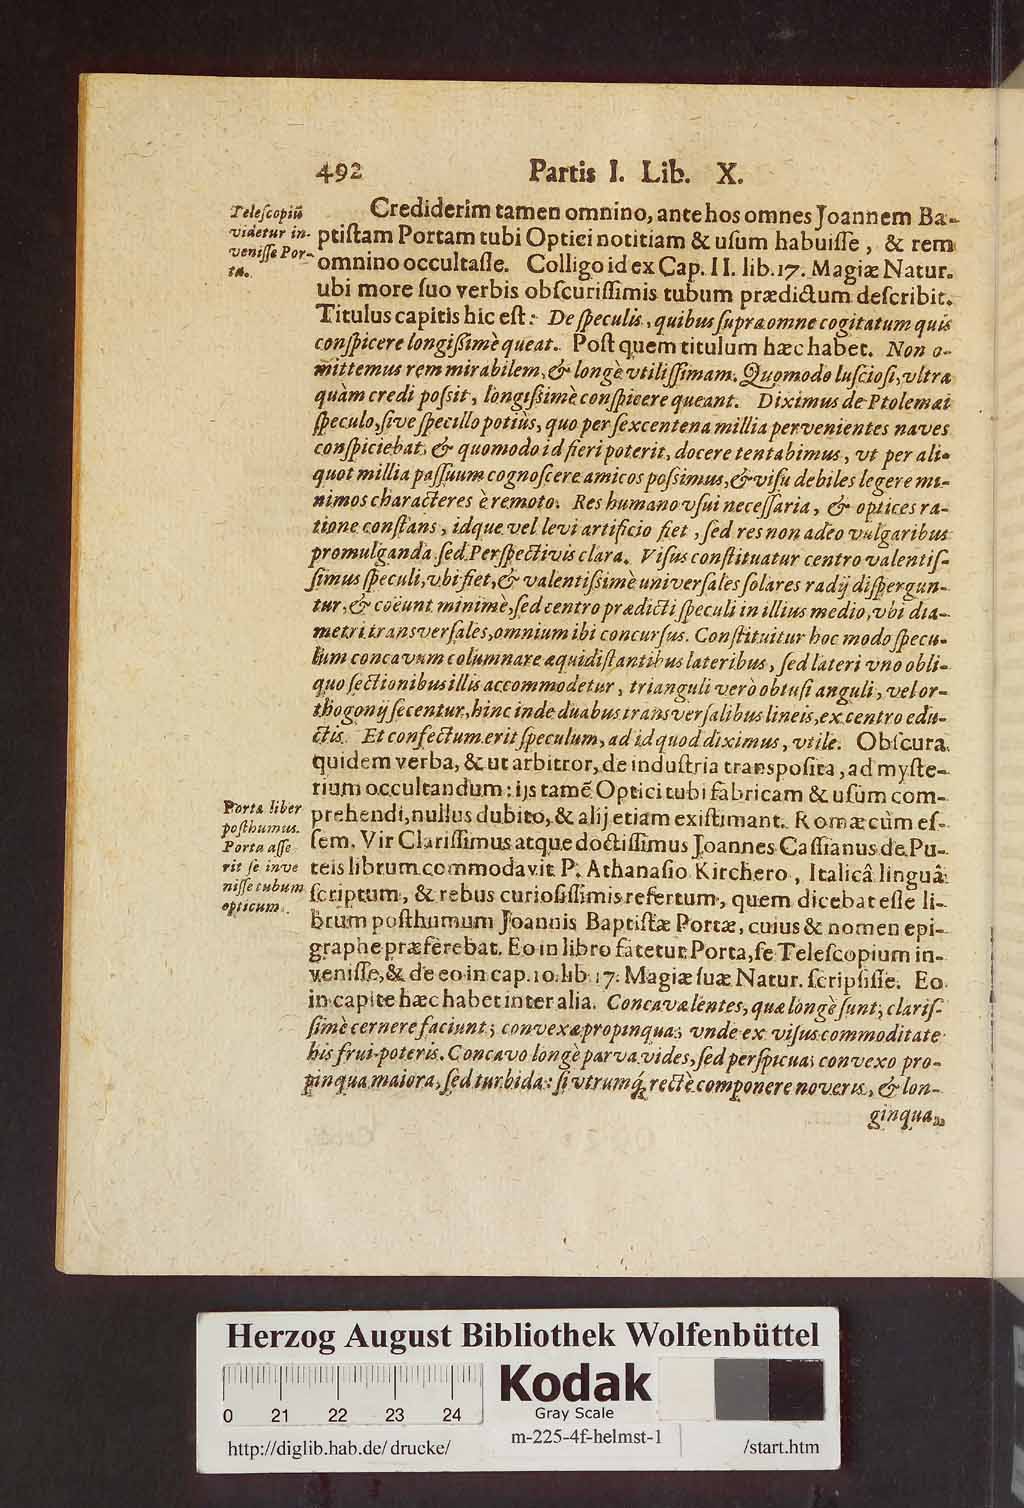 492 Partis I. Lib. X.
Teleſcopiũ
videtur in-
veniſſe Por-
ta.
Crediderim tamen omnino, ante hos omnes Joannem Ba-
ptiſtam Portam tubi Optici notitiam & uſum habuiſſe, & rem
omnino occultaſſe. Colligo id ex Cap. II. lib. 17. Magiæ Natur.
ubi more ſuo verbis obſcuriſſimis tubum prædictum deſcribit.
Titulus capitis hic eſt: De ſpeculis, quibus ſupra omne cogitatum quis
conſpicere longiſsimè queat. Poſt quem titulum hæc habet. Non o-
mittemus rem mirabilem, & longè vtiliſſimam. Quomodo luſcioſi, vltra
quàm credi poſsit, longiſsimè conſpicere queant. Diximus de Ptolemæi
ſpeculo, ſive ſpecillo potiùs, quo per ſexcentena millia pervenientes naves
conſpiciebat; & quomodo id fieri poterit, docere tentabimus, vt per ali-
quot millia paſſuum cognoſcere amicos poſsimus, & viſu debiles legere mi-
nimos characteres è remoto. Res humano vſui neceſſaria, & optices ra-
tione conſtans, idque vel levi artificio fiet, ſed res non adeo vulgaribus
promulganda ſed Perſpectivis clara. Viſus conſtituatur centro valentiſ-
ſimus ſpeculi, vbi fiet, & valentiſsimè univerſales ſolares radij diſpergun-
tur, & coëunt minimè, ſed centro prædicti ſpeculi in illius medio, vbi dia-
metri tranſverſales, omnium ibi concurſus. Conſtituitur hoc modo ſpecu-
lum concavum columnare æquidiſtantibus lateribus, ſed lateri vno obli-
quo ſectionibus illis accommodetur, trianguli verò obtuſi anguli, vel or-
thogonij ſecentur, hinc inde duabus tranſverſalibus lineis, ex centro edu-
ctis. Et confectum erit ſpeculum, ad id quod diximus, vtile. Obſcura
quidem verba, & ut arbitror, de induſtria transpoſita, ad myſte-
rium occultandum: ijs tamẽ Optici tubi fabricam & uſum com-
Porta liber
poſthumus.
Porta aſſe
rit ſe inve
niſſe tubum
opticum.
prehendi, nullus dubito, & alij etiam exiſtimant. Romæ cùm eſ-
ſem, Vir Clariſſimus atque doctiſſimus Joannes Caſſianus de Pu-
teis librum commodavit P. Athanaſio Kirchero, Italicâ linguâ
ſcriptum, & rebus curioſiſſimis refertum, quem dicebat eſſe li-
brum poſthumum Joannis Baptiſtæ Portæ, cuius & nomen epi-
graphe præferebat. Eo in libro fatetur Porta, ſe Teleſcopium in-
veniſſe, & de eo in cap. 10. lib. 17. Magiæ ſuæ Natur. ſcripſiſſe. Eo
in capite hæc habet inter alia. Concavæ lentes, quæ longè ſunt, clariſ-
ſimè cernere faciunt; convexæ propinqua; vnde ex viſus commoditate
his frui poteris. Concavo longè parva vides, ſed perſpicua; convexo pro-
pinqua maiora, ſed turbida: ſi vtrumq́; rectè componere noveris, & lon-
ginqua
Herzog August Bibliothek Wolfenbüttel
0 21 22 23 24
Kodak
Gray Scale
http://diglib.hab.de/drucke/ m-225-4f-helmst-1 /start.htm